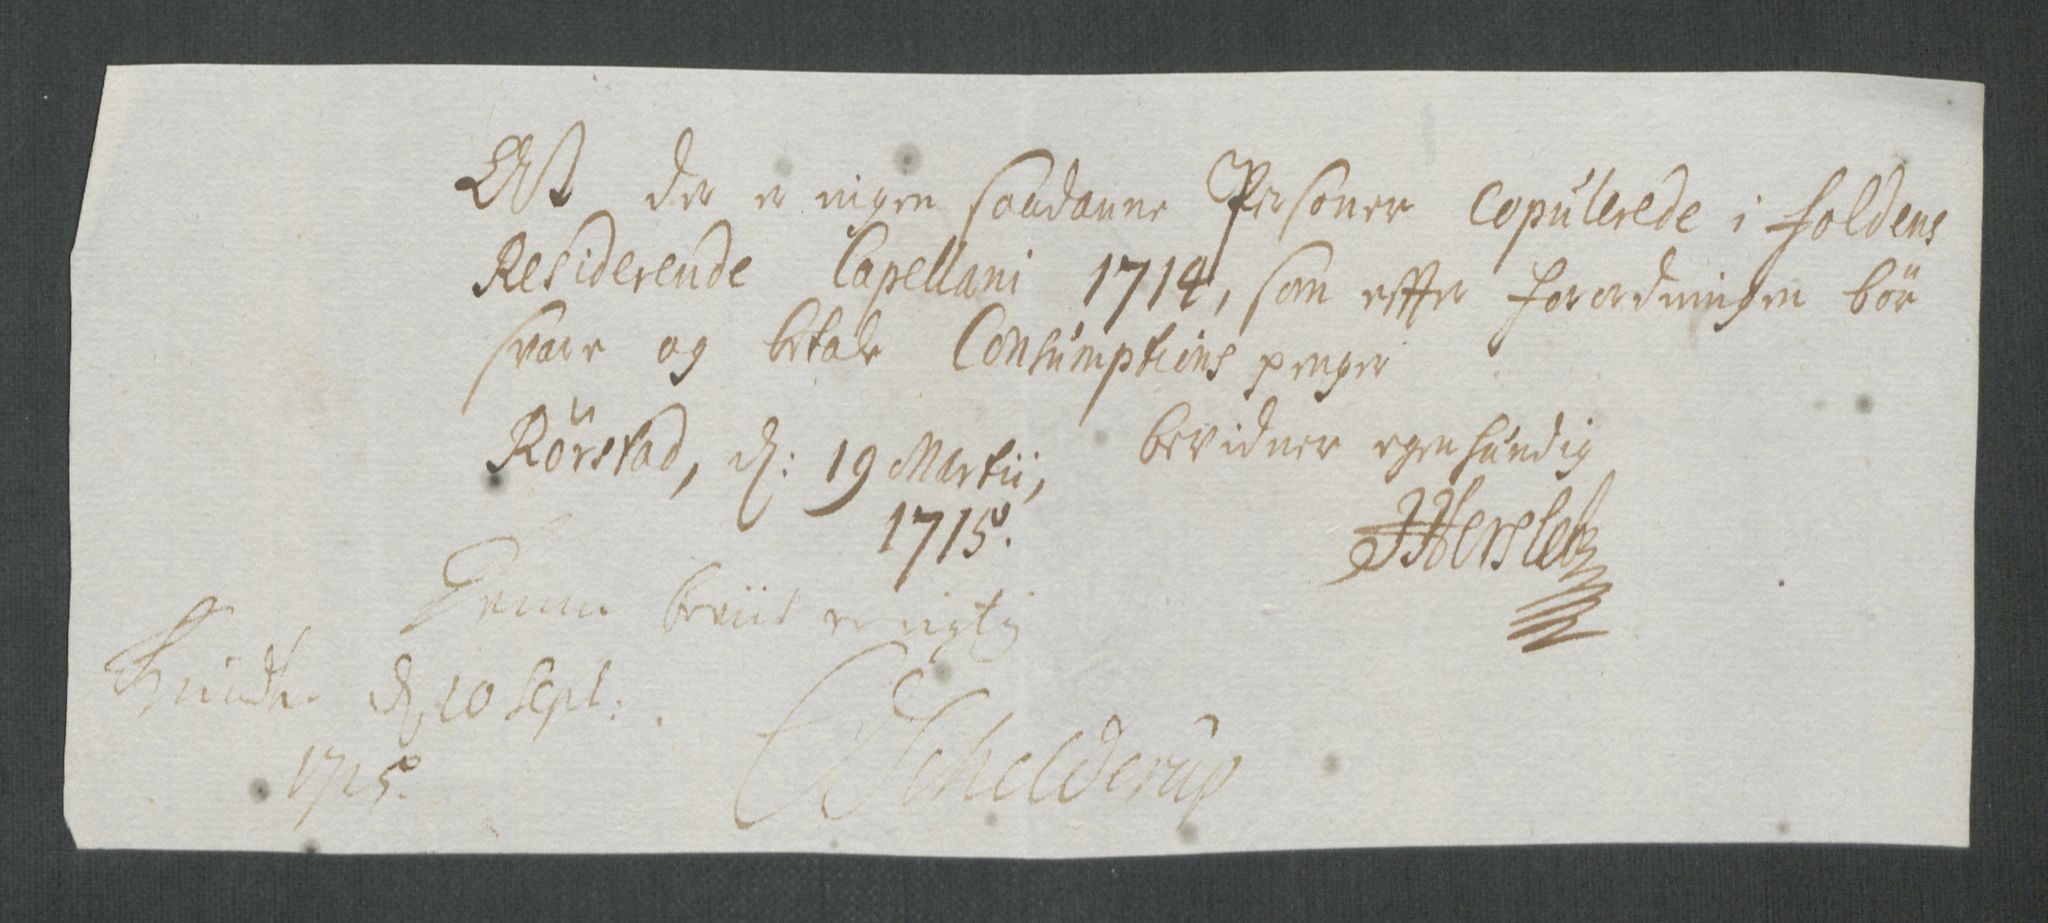 At der er ingen saadanne Personer Copulerede i Foldens
Residerende Capellani 1714, som efter forordningen bör
svare og betale Consumptions penger
Rörstad, d: 19 Martii, bevidner egenhændig
1715. JHersleb
Denne beviis er rigtig
d 10 Sept:
1715. Schelderup